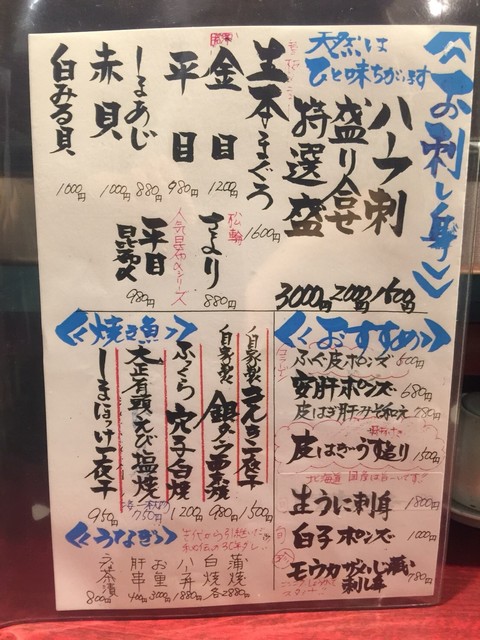 《お刺し身》
天然は
ひと味ちがいます
ハーフ刺 1600円
盛り合せ 2000円
特選盛 3000円
生本まぐろ 1600円
金目 1200円
平目 980円
しまあじ 880円
赤貝 1000円
白みる貝 1000円
松輪
さより 880円
人気昆布〆シリーズ
平目昆布〆 980円
《おすすめ》
コラーゲン
ふぐ皮ポンズ 500円
安肝ポンズ 680円
皮はぎ肝
皮はぎうす造り 1500円
北海道
生うに刺身 1800円
旬
白子ポンズ 1000円
モウカザメ
刺し身 780円
スタミナ
《焼き魚》
自家製
きんき一夜干 1500円
自家製
銀だら粟漬焼 980円
ふっくら穴子白焼 1200円
大正有頭えび塩焼 750円
しまほっけ一夜干 950円
《うなぎ》
蒲焼
白焼 各2880円
小丼 1880円
お重 3000円
肝串 400円
うな茶漬 800円